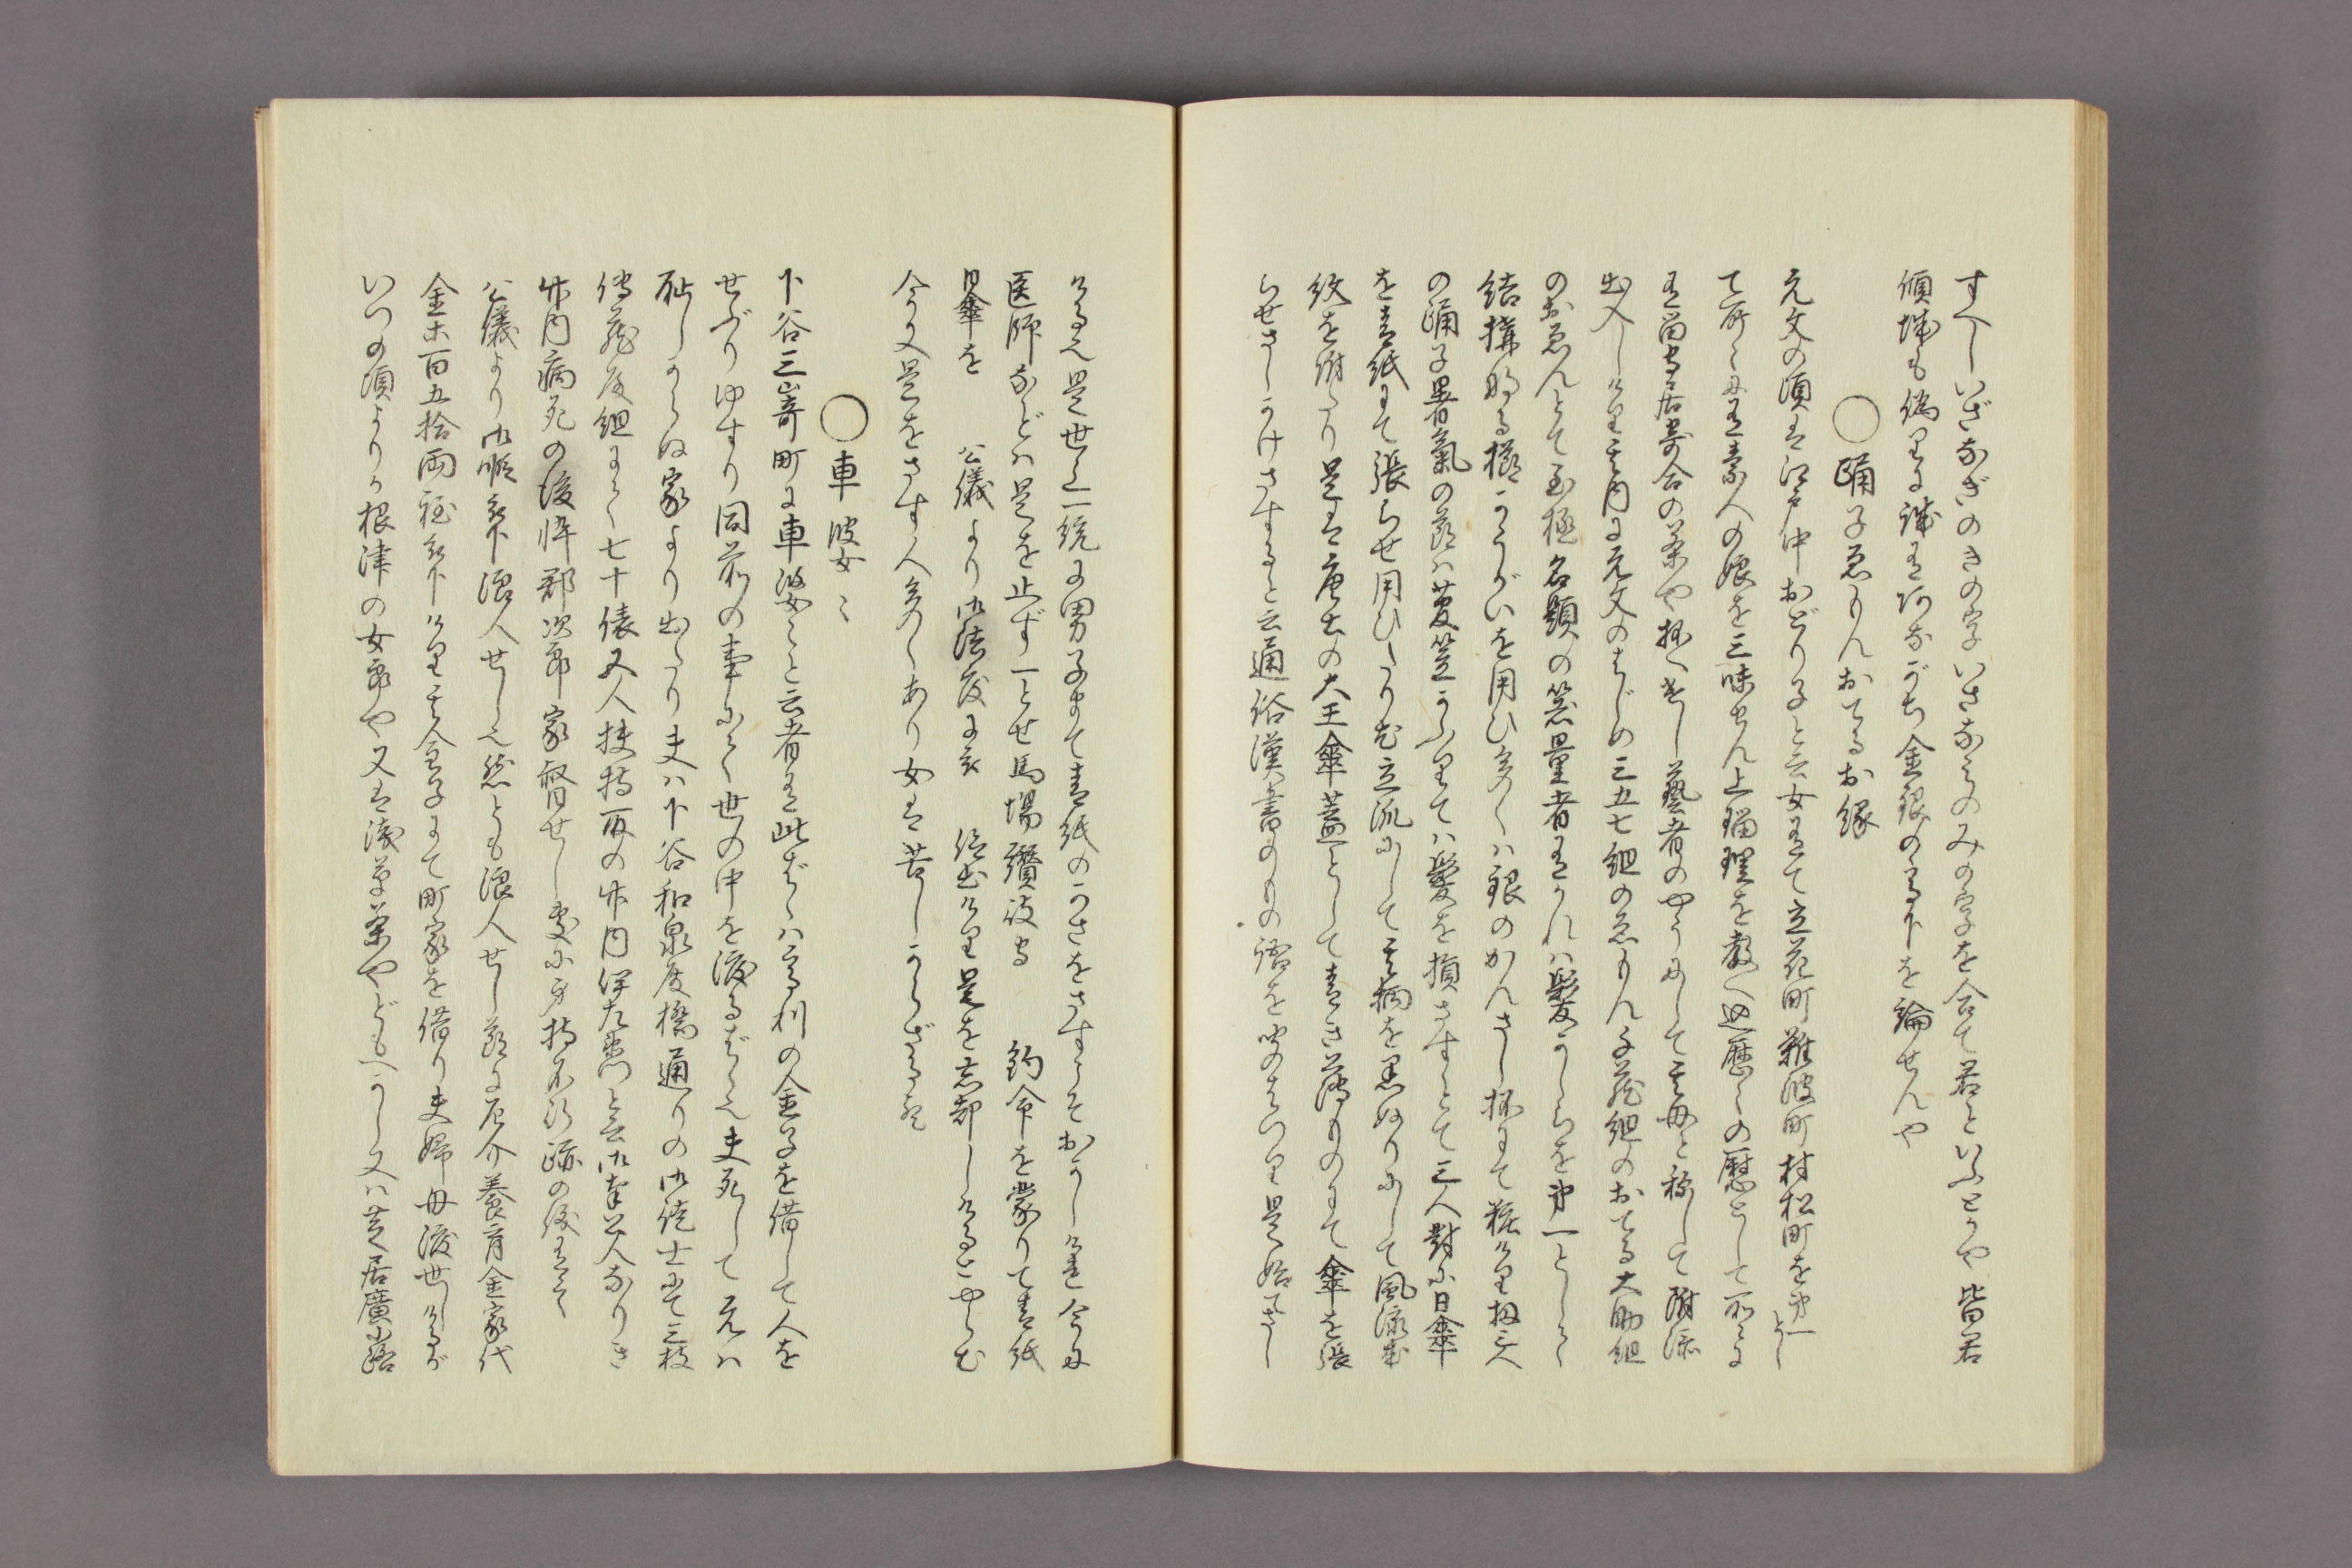 すへしいざなぎのきの字いさなみのみの字を合て君といふとかや皆君
傾城も偽りに誠有何ながち金銀の高下を論せんや
○踊子ゑもんおてるお縁
元文の頃は江戸中おどり子と云女有て立花町難波町村松町を第一とし
て所々に有素人の娘を三味せん上瑠理を教へ歴々の慰として所々に
有留守居寄合の茶や抔へ出し藝者のやうにして其母と称して附添
出入しける其内に元文のはじめ三五七組のゑもん千蔵組のおてる大助組
のおゑんとて至極名題の器量者有かれハ髪かしらを第一として
結構成る櫛かうがいを用ひ多くハ銀のかんさし抔にて粧ける扨三人
の踊子暑氣の節ハ菅笠かふりてハ髪を損さすとて三人對に日傘
を青紙にて張らせ用ひたり尤立派にして其柄を黒ぬりにして風流成
紋を附たり是は唐土の大王傘蓋として青き薄ものにて傘を張
らせさしかけさすると云通俗漢書のりの語を聞はつり是始てさし
ける之是世上一統に男子まて青紙のかさをさす事そおかしけれ今に
医師などハ是を止ず一とせ馬場讃岐守　釣命を蒙りて青紙
日傘を　公儀より御法度に　仰出ける是を忘却しけるとやらむ
今又是をさす人多くあり女は苦しからざる歟
○車婆々
下谷三嵜町に車婆々と云者有此ばゞハ高利の金子を借して人を
せぶりゆすり同前の事にて世の中を渡るばゞ之夫死して元ハ
耻しからぬ家より出たり夫ハ下谷和泉度橋通りの御徒士にて三枝
傳蔵殿組にて七十俵五人扶持取の竹内伊左衛門と云御奉公人なりき
竹内病死の後忰郡次郎家督せし処に身持不行跡の後有て
公儀より御暇被下浪人せし之然とも浪人せし節に厄介養育金家代
金百五拾両程被下ける其金子にて町家を借り夫婦母渡世しけるが
いつの頃よりか根津の女郎や又は浅草茶やどもへかし又ハ芝居廣小路